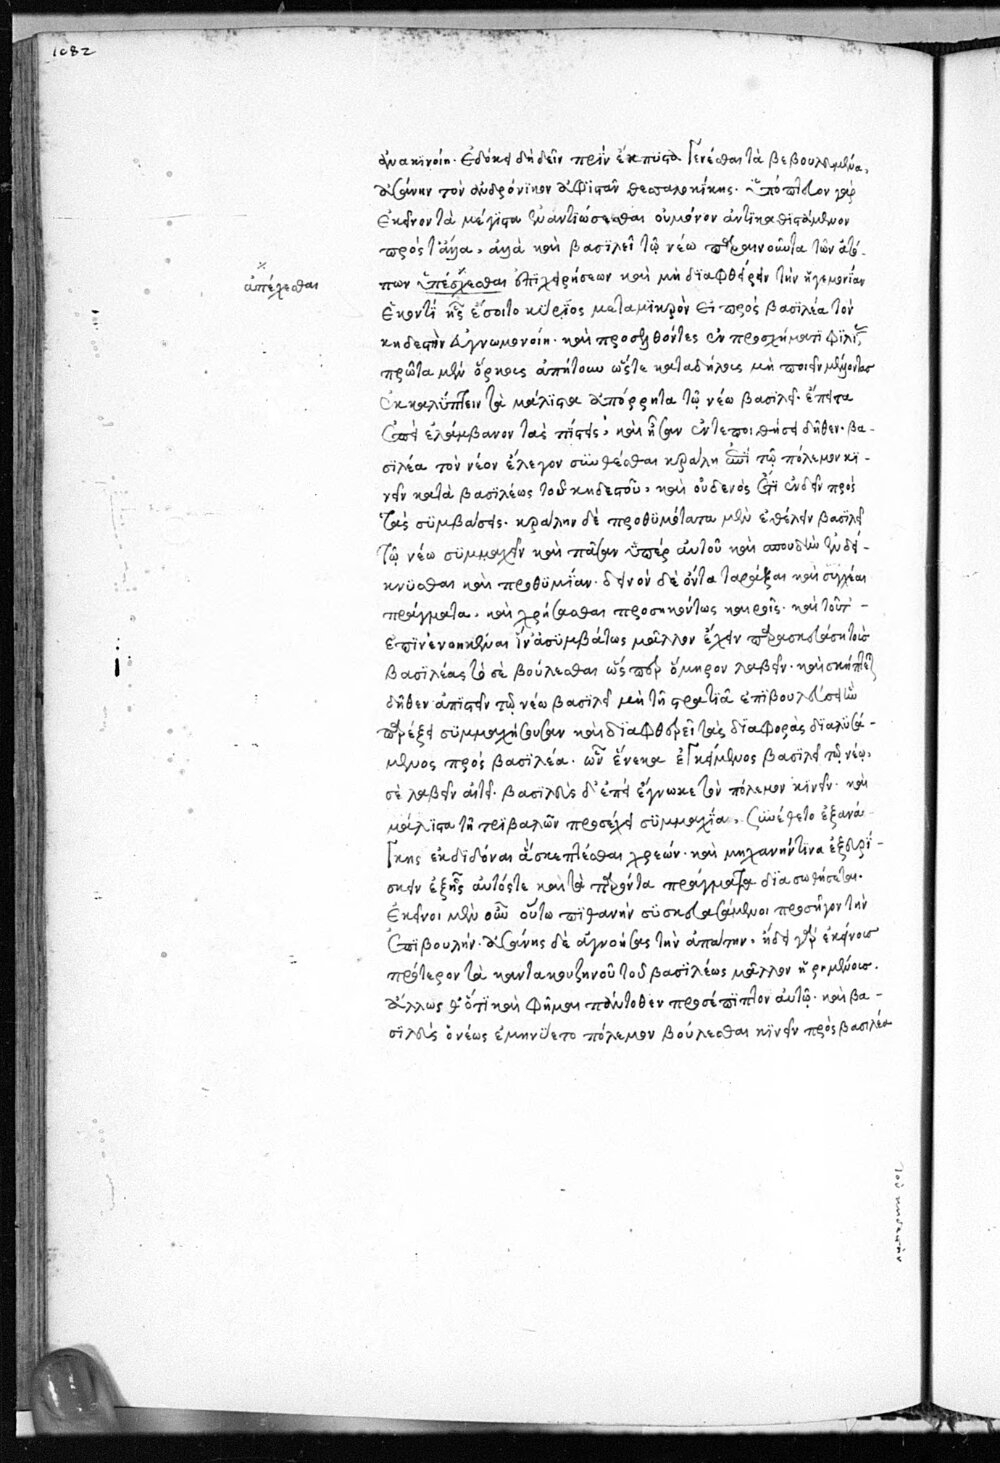 1082
ἀνακινοίη. ἐδόκει δὴ δεῖν πρὶν ἔκπυστα γενέσθαι τὰ βεβουλευμένα,
ἀσάνην τὸν ἀνδρόνικον ἀφιστᾶν θεσσαλονίκης. ὕποπτον γὰρ
ἐκεῖνον τὰ μέγιστα ἐναντιώσεσθαι οὐ μόνον ἀντικαθιστάμενον
πρὸς τἄλλα, ἀλλὰ καὶ βασιλεῖ τῷ νέῳ παραινοῦντα τῶν ἀτό-
πων ὑπέσχεσθαι ἐπιχειρήσεων καὶ μὴ διαφθείρειν τὴν ἡγεμονίαν
ἀπέχεσθαι
ἑκοντὶ ἧς ἔσοιτο κύριος μεταμικρὸν εἰ πρὸς βασιλέα τὸν
κηδεστὴν ἀγνωμονοίη. καὶ προσελθόντες ἐν προσχήματι φιλίας,
πρῶτα μὲν ὅρκους ἀπῄτουν ὥστε καταδήλους μὴ ποιεῖν μέλλοντας
ἐκκαλύπτειν τὰ μάλιστα ἀπόρρητα τῷ νέῳ βασιλεῖ. ἔπειτα
ἐπεὶ ἐλάμβανον τὰς πίστεις, καὶ ἦσαν ἐντεποιθήσει δῆθεν. βα-
σιλέα τὸν νέον ἔλεγον συνθέσθαι κράλῃ ἐπὶ τῷ πόλεμον κι-
νεῖν κατὰ βασιλέως τοῦ κηδεστοῦ, καὶ οὐδενὸς ἔτι ἐνδεῖν πρὸς
τὰς συμβάσεις. κράλην δὲ προθυμότατα μὲν ἐθέλειν βασιλεῖ
τῷ νέῳ συμμαχεῖν καὶ πᾶσαν ὑπὲρ αὐτοῦ καὶ σπουδὴν ἐνδεί-
κνυσθαι καὶ προθυμίαν. δεινὸν δὲ ὄντα ταράξαι καὶ συγχέαι
πράγματα, καὶ χρήσασθαι προσηκόντως καιροῖς. καὶ τοῦτ᾽
ἐπινενοηκέναι ἵν᾽ ἀσυμβάτως μᾶλλον ἔχειν παρασκευάσῃ τοὺς
βασιλέας τὸ σὲ βούλεσθαι ὥσπερ ὅμηρον λαβεῖν. καὶ σκήπτεται
δῆθεν ἀπιστεῖν τῷ νέῳ βασιλεῖ μὴ τῇ στρατιᾷ ἐπιβουλεύσει ἣν
παρέξει συμμαχήσουσαν καὶ διαφθερεῖ τὰς διαφορὰς διαλυσά-
μενος πρὸς βασιλέα. ὧν ἕνεκα ἐγκείμενος βασιλεῖ τῷ νέῳ,
σὲ λαβεῖν αἰτεῖ. βασιλεὺς δ᾽ ἐπεὶ ἔγνωκε τὸν πόλεμον κινεῖν. καὶ
μάλιστα τῇ τριβαλῶν προσέχει συμμαχίᾳ, συνέθετο ἐξανά-
γκης ἐκδιδόναι ἃ σκεπτέσθαι χρεών. καὶ μηχανήν τινα ἐξευρί-
σκειν ἐξ ἧς αὐτός τε καὶ τὰ παρόντα πράγματα διασωθήσεται.
ἐκεῖνοι μὲν οὖν οὕτω πιθανὴν συσκευασάμενοι προσῆγον τὴν
ἐπιβουλήν. ἀσάνης δὲ ἀγνοήσας τὴν ἀπάτην, ᾔδει γὰρ ἐκείνοις
πρότερον τὰ καντακουζηνοῦ τοῦ βασιλέως μᾶλλον ᾑρημένοις.
ἄλλως θ᾽ ὅτι καὶ φῆμαι πάντοθεν προσέπιπτον αὐτῷ. καὶ βα-
σιλεὺς ὁ νέος ἐμηνύετο πόλεμον βούλεσθαι κινεῖν πρὸς βασιλέα
τὸν κηδεστὴν